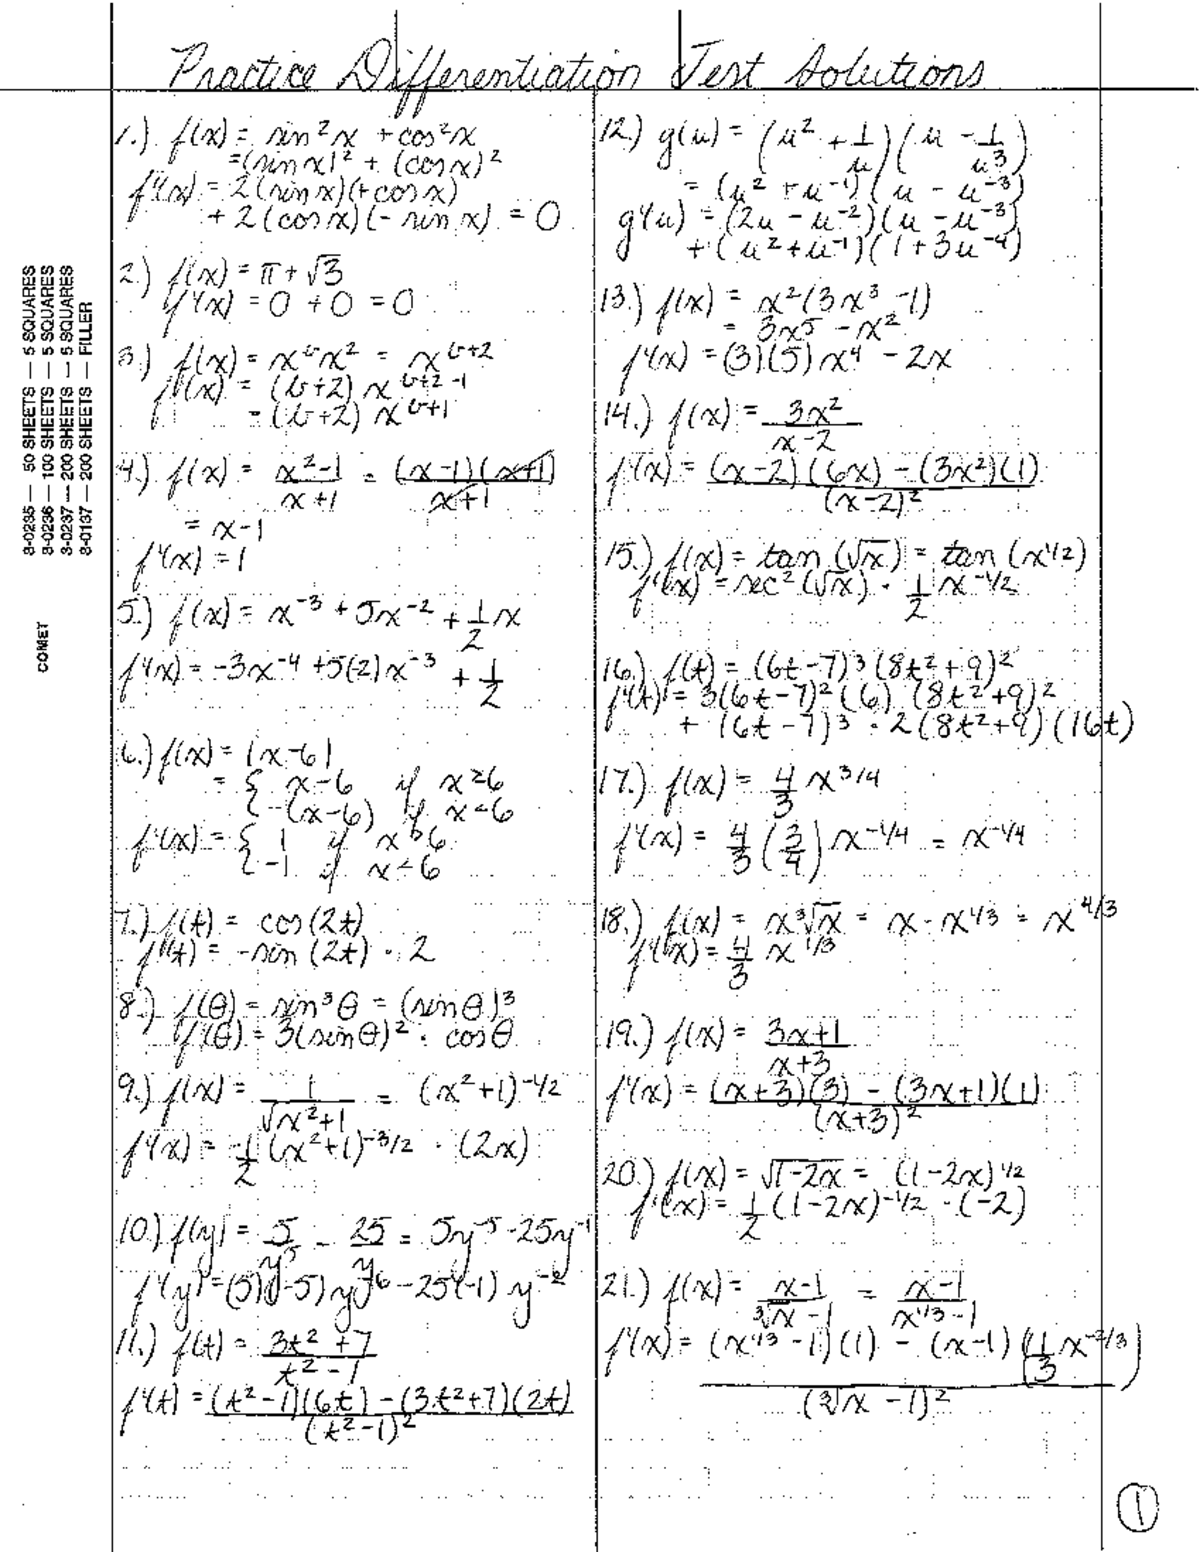 Practice Differentiation Test Solutions
8-0235 — 50 SHEETS — 5 SQUARES
8-0236 — 100 SHEETS — 5 SQUARES
8-0237 — 200 SHEETS — 5 SQUARES
8-0137 — 200 SHEETS — FILLER
COMET
1.) f(x) = sin²x + cos²x
= (sin x)² + (cos x)²
f'(x) = 2(sin x)(+cos x)
+ 2(cos x)(-sin x) = 0
2.) f(x) = π + √3
f'(x) = 0 + 0 = 0
3.) f(x) = x^b x² = x^(b+2)
f'(x) = (b+2) x^(b+2-1)
= (b+2) x^(b+1)
4.) f(x) = (x²-1)/(x+1) = (x-1)(x+1)/(x+1)
= x-1
f'(x) = 1
5.) f(x) = x⁻³ + 5x⁻² + 1/2 x
f'(x) = -3x⁻⁴ + 5(2)x⁻³ + 1/2
6.) f(x) = |x-6|
= { x-6 if x≥6
{ -(x-6) if x<6
f'(x) = { 1 if x>6
{ -1 if x<6
7.) f(t) = cos(2t)
f'(t) = -sin(2t) · 2
8.) f(θ) = sin³θ = (sin θ)³
f'(θ) = 3(sin θ)² · cos θ
9.) f(x) = 1/√(x²+1) = (x²+1)^(-1/2)
f'(x) = -1/2 (x²+1)^(-3/2) · (2x)
10.) f(y) = 5/y⁵ - 25/y = 5y⁻⁵ - 25y⁻¹
f'(y) = (5)(-5)y⁻⁶ - 25(-1) y⁻²
11.) f(t) = (3t²+7)/(t²-1)
f'(t) = ((t²-1)(6t) - (3t²+7)(2t))/(t²-1)²
12.) g(u) = (u² + 1/u)(u - 1/u³)
= (u² + u⁻¹)(u - u⁻³)
g'(u) = (2u - u⁻²)(u - u⁻³)
+ (u² + u⁻¹)(1 + 3u⁻⁴)
13.) f(x) = x²(3x³ - 1)
= 3x⁵ - x²
f'(x) = (3)(5)x⁴ - 2x
14.) f(x) = 3x²/(x-2)
f'(x) = ((x-2)(6x) - (3x²)(1))/(x-2)²
15.) f(x) = tan(√x) = tan(x^(1/2))
f'(x) = sec²(√x) · 1/2 x^(-1/2)
16.) f(t) = (6t-7)³(8t²+9)²
f'(t) = 3(6t-7)²(6)(8t²+9)²
+ (6t-7)³ · 2(8t²+9)(16t)
17.) f(x) = 4/3 x^(3/4)
f'(x) = 4/3 (3/4) x^(-1/4) = x^(-1/4)
18.) f(x) = x ³√x = x · x^(1/3) = x^(4/3)
f'(x) = 4/3 x^(1/3)
19.) f(x) = (3x+1)/(x+3)
f'(x) = ((x+3)(3) - (3x+1)(1))/(x+3)²
20.) f(x) = √(1-2x) = (1-2x)^(1/2)
f'(x) = 1/2 (1-2x)^(-1/2) · (-2)
21.) f(x) = (x-1)/(³√x - 1) = (x-1)/(x^(1/3) - 1)
f'(x) = ((x^(1/3) - 1)(1) - (x-1)(1/3 x^(-2/3)))/(³√x - 1)²
1